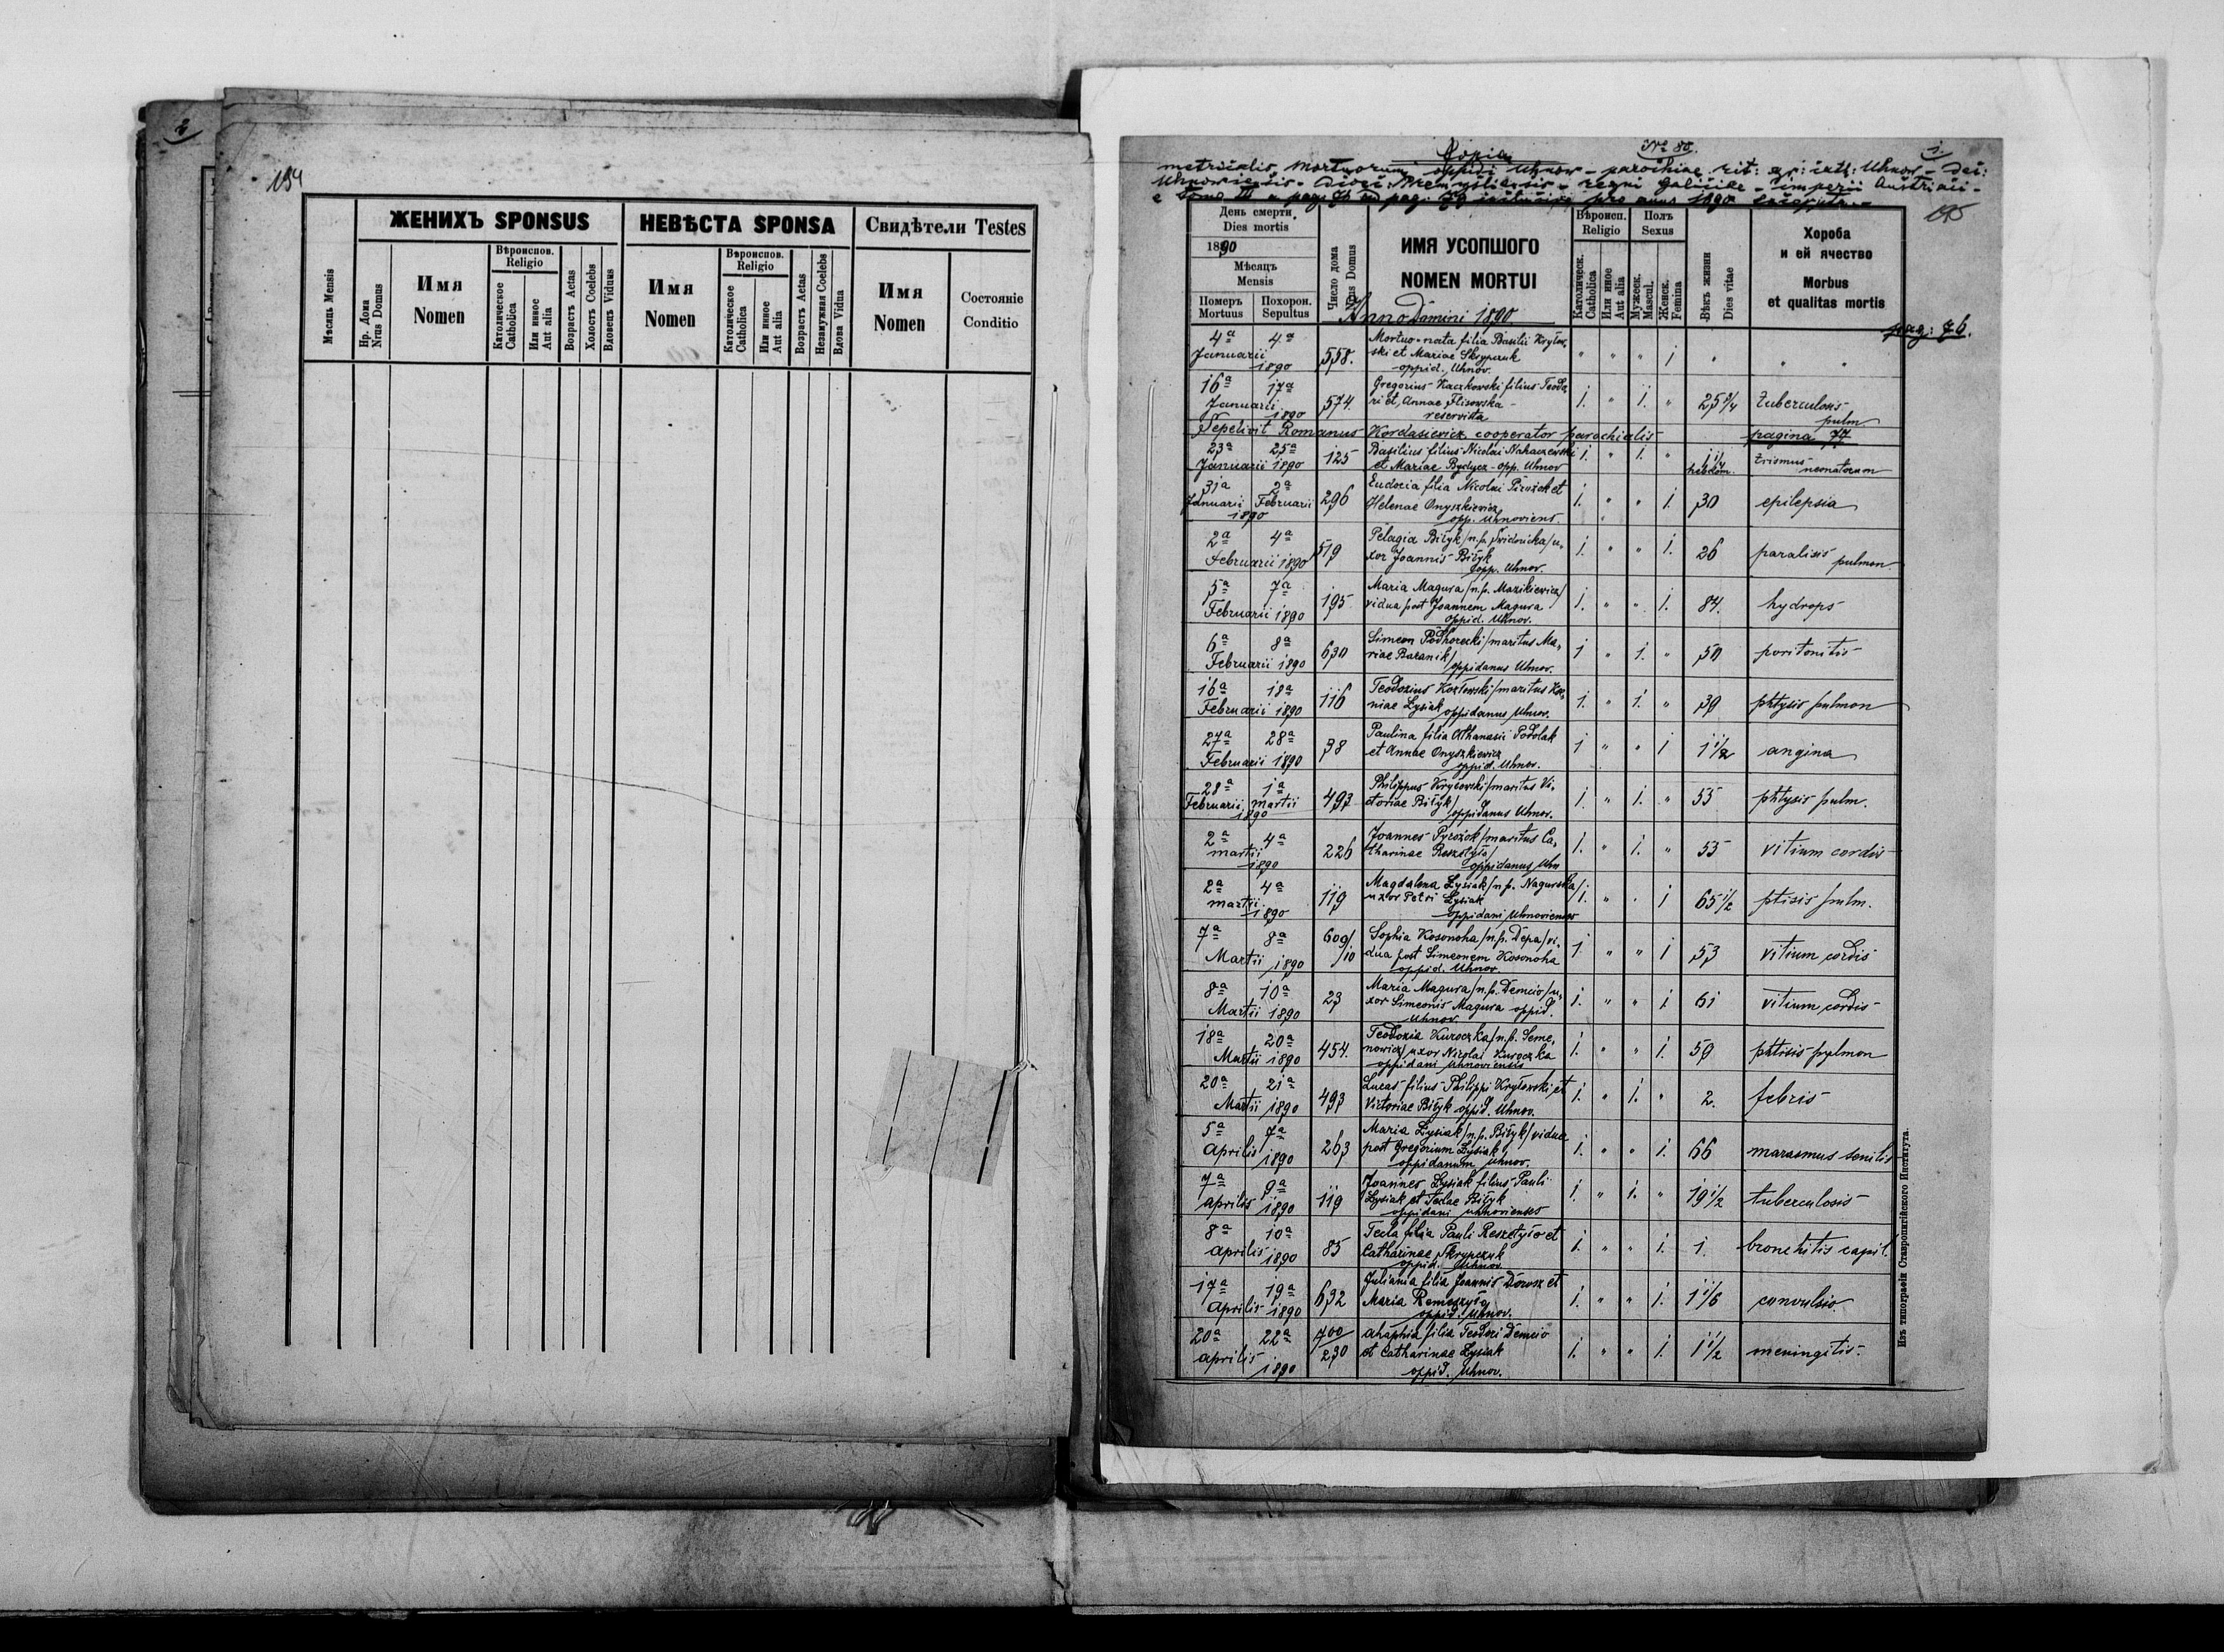 2
194
ЖЕНИХЪ SPONSUS
НЕВѢСТА SPONSA
Свидѣтели Testes
Мѣсяць Mensis
Нр. Дома
Nrus Domus
Имя
Nomen
Вѣроиспов.
Religio
Католическое
Catholica
Или инное
Aut alia
Возрастъ Aetas
Холостъ Coelebs
Вдовецъ Viduus
Имя
Nomen
Вѣроиспов.
Religio
Католическое
Catholica
Или инное
Aut alia
Возрастъ Aetas
Незамужная Coelebs
Вдова Vidua
Имя
Nomen
Состоянie
Conditio
Copia
№ 88.
1.
metricalis mortuorum oppidi Uhnow - parochiae rit: gr: cath: Uhnow - dec:
Uhnoviensis - dioec: Premysliensis - regni Galiciae - imperii Austriaci -
e Tomo III a pag. 76 ad pag. 79 pro anno 1890
195
День смерти
Dies mortis
1890
Мѣсяцъ
Mensis
Померъ
Mortuus
Похорон.
Sepultus
Число дома
Nrus Domus
ИМЯ УСОПШОГО
NOMEN MORTUI
Anno Domini 1890
Вѣроисп.
Religio
Католическ.
Catholica
Или иное
Aut alia
Полъ
Sexus
Мужеск.
Mascul.
Женск.
Femina
Вѣкъ жизни
Dies vitae
Хороба
и ей ячество
Morbus
et qualitas mortis
pag: 76.
4a 4a Mortuo-nata filia Basilii Kryłow,
Januarii 558. ski et Mariae Skrypczuk " " " 1 " " "
1890 oppid. Uhnov.
16a 17a Gregorius Kaczkowski filius Teodo,
Januarii 574. ri et Annae Flisowska - 1. " 1. " 25 3/4 tuberculosis
1890 reservista pulm
Sepelivit Romanus Kordasiewicz cooperator parochialis pagina 77
23a 25a 125 Basilius filius Nicolai Nakaczewski 1. " 1. " 1 1/4 trismus
Januarii 1890 et Mariae Bydycz - opp. Uhnov hebdom. neonatorum
31a 2a Eudocia filia Nicolai Pirożek et
Januarii Februarii 296 Helenae Onyszkiewicz 1. " " 1. 30 epilepsia
1890 opp. Uhnoviens.
2a 4a 519 Pelagia Biłyk /n.p. Swidnicka/ u, 1. " " 1. 26 paralisis
Februarii 1890 xor Joannis Biłyk pulmon.
opp. Uhnov.
5a 7a 195 Maria Magura /n.p. Mazikiewicz/ 1. " " 1. 84. hydrops
Februarii 1890 vidua post Joannem Magura
oppid. Uhnov.
6a 8a 630 Simeon Podhorecki /maritus Ma, 1 " 1. " 50 poritonitis
Februarii 1890 riae Baranik/
oppidanus Uhnov.
16a 18a 116 Teodozius Kozłowski /maritus Xe, 1. " 1. " 39 phtysis pulmon
Februarii 1890 niae Łysiak
oppidanus Uhnov.
27a 28a 38 Paulina filia Athanasii Podolak 1 " " 1 1 1/2 angina
Februarii 1890 et Annae Onyszkiewicz
oppid. Uhnov.
28a 1a Philippus Kryłowski /maritus Vi,
Februarii martii 493 ctoriae Biłyk/ 1. " 1. " 55 phtysis pulm.
1890 oppidanus Uhnov.
2a 4a Joannes Pyrożok /maritus Ca,
martii 226 tharinae Reszetyło/ 1. " 1. " 55 vitium cordis
1890 oppidanus Uhn
2a 4a Magdalena Łysiak /n.p. Nagurska/
martii 119 uxor Petri Łysiak 1. " . 1 65 1/2 ptisis pulm.
1890 oppidani Uhnovienses
7a 8a 609/10 Sophia Kosonoha /n.p. Depa/ vi, 1 " " 1 53 vitium cordis
Martii 1890 dua post Simeonem Kosonoha
oppid. Uhnov.
8a 10a 23 Maria Magura /n.p. Demcio/ u, 1. " " 1. 61 vitium cordis
Martii 1890 xor Simeonis Magura oppid.
Uhnov
18a 20a 454. Teodozia Kuroczka /n.p. Seme, 1. " " 1. 59 phtisis pulmon
Martii 1890 nowicz/ uxor Nicolai Kuroczka
oppidani Uhnoviensis
20a 21a 493 Lucas filius Philippi Kryłowski et 1. " 1. " 2. febris
Martii 1890 Victoriae Biłyk oppid. Uhnov.
5a 7a 263 Maria Łysiak /n.p. Biłyk/ vidua 1. " " 1. 66 marasmus senilis
Aprilis 1890 post Gregorium Łysiak
oppidanum Uhnov.
7a 9a 119 Joannes Łysiak filius Pauli 1. " 1. " 19 1/2 tuberculosis
aprilis 1890 Łysiak et Teclae Biłyk
oppidani uhnovienses
8a 10a 85 Tecla filia Pauli Reszetyło et 1. " " 1. 1. bronchitis capil.
aprilis 1890 Catharinae Skrypczuk
oppid. Uhnov.
17a 19a 632 Juliania filia Joannis Dowsz et 1. " " 1. 1 1/6 convulsio.
aprilis 1890 Maria Remeszyło
oppid. Uhnov.
20a 22a 700/230 ahaphia filia Teodori Demcio 1. " " 1. 1 1/2 meningitis.
aprilis 1890 et Catharinae Łysiak
oppid. Uhnov.
Изъ типографіи Ставропигійского Института.